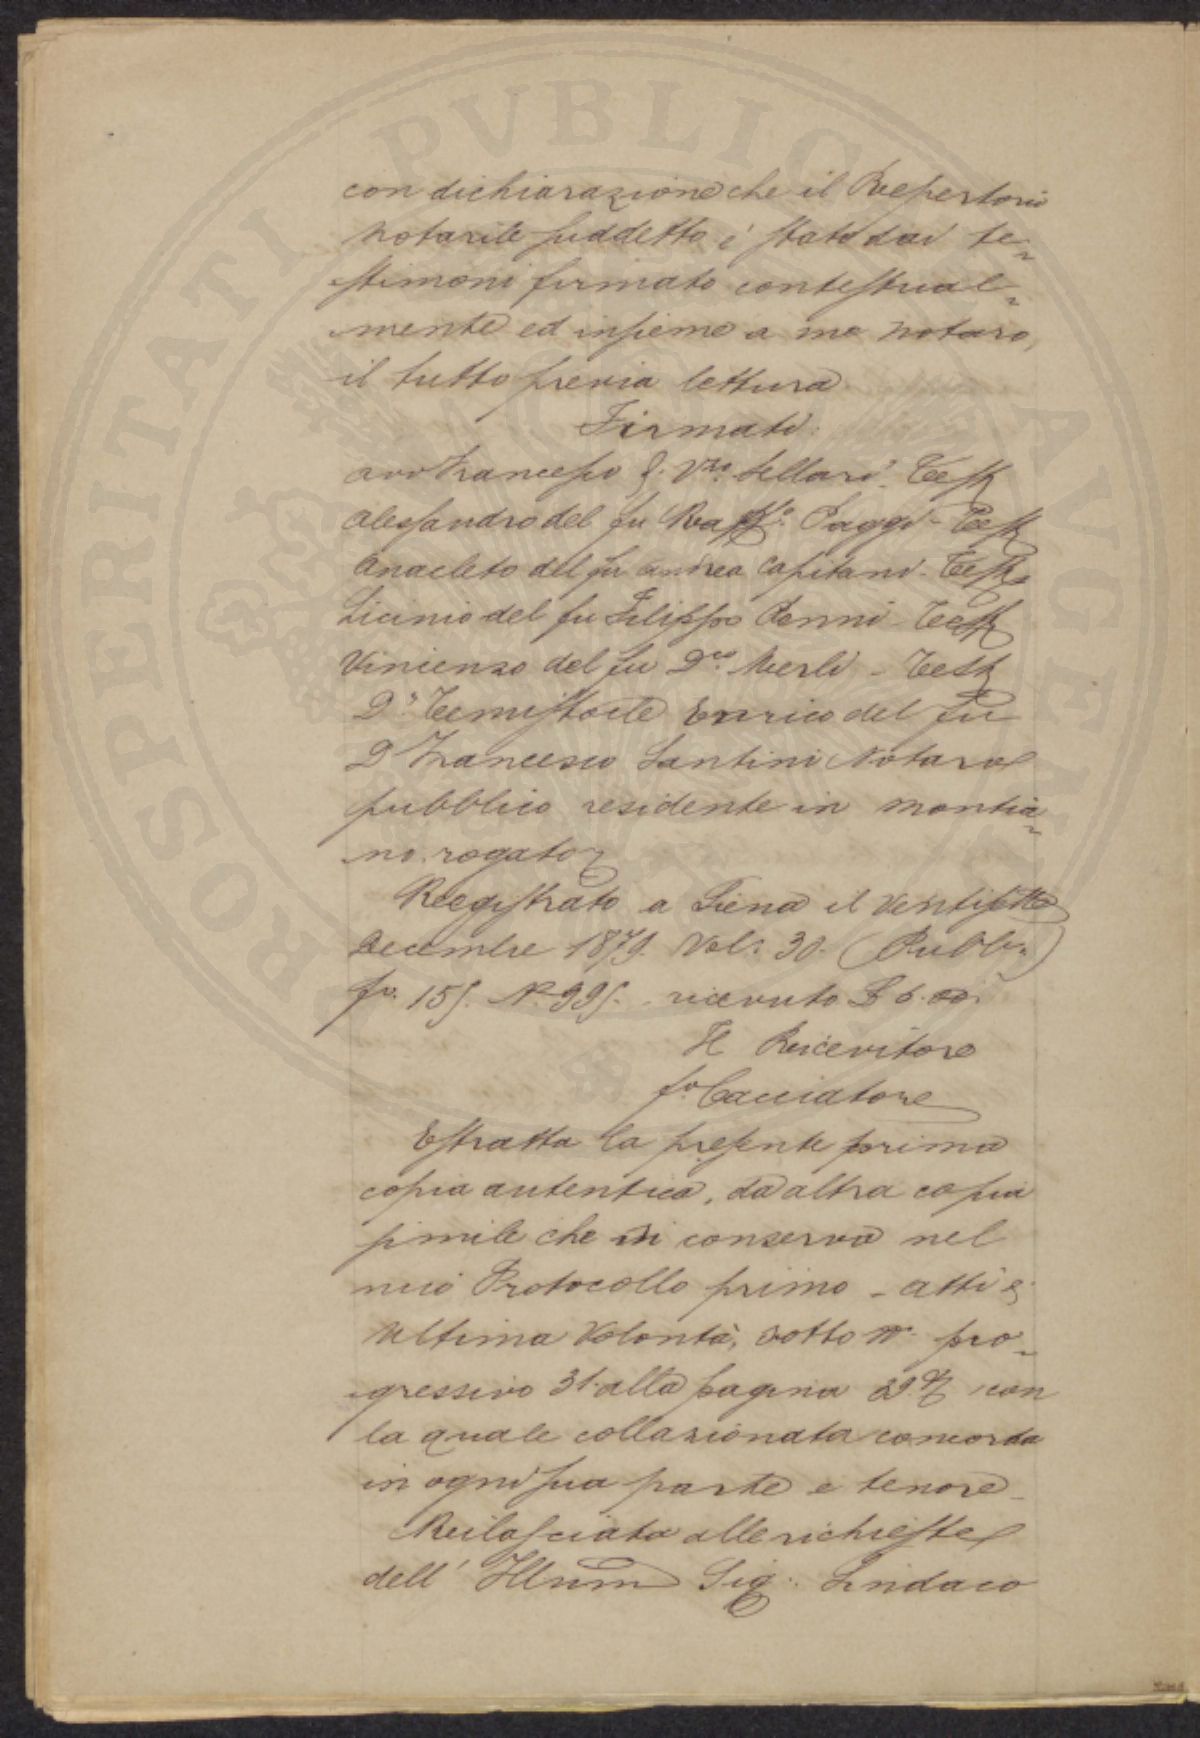 con dichiarazione che il Repertorio
Notarile suddetto è stato dai te-
stimoni firmato contestual-
mente ed insieme a me Notaro,
il tutto previa lettura
Firmati:
Avv Francesco f. Vzo. Sellari Test
Alessandro del fu Raffo. Paggi - Test
Anacleto del fu Andrea Capitani - Test
Licinio del fu Filippo Penni Test
Vincenzo del fu Dco. Merli - Test
Dr. Temistocle Enrico del fu
Dr Francesco Santini Notaro
pubblico residente in Montia-
no rogato
Registrato a Siena il ventisette
Decembre 1879. Vol: 30. (Pubbli)
fo. 155. No 995. ricevuto L 6.00
Il Ricevitore
fo Cacciatore
Estratta la presente prima
copia autentica, da altra copia
simile che si conserva nel
mio Protocollo primo - atti di
Ultima Volontà, sotto No. pro-
gressivo 31. alla pagina 29. con
la quale collazionata concorda
in ogni sua parte e tenore
Rilasciata alle richieste
dell' Illum Sig. Sindaco
PROSPERITATI PVBLICAE AVGENDAE